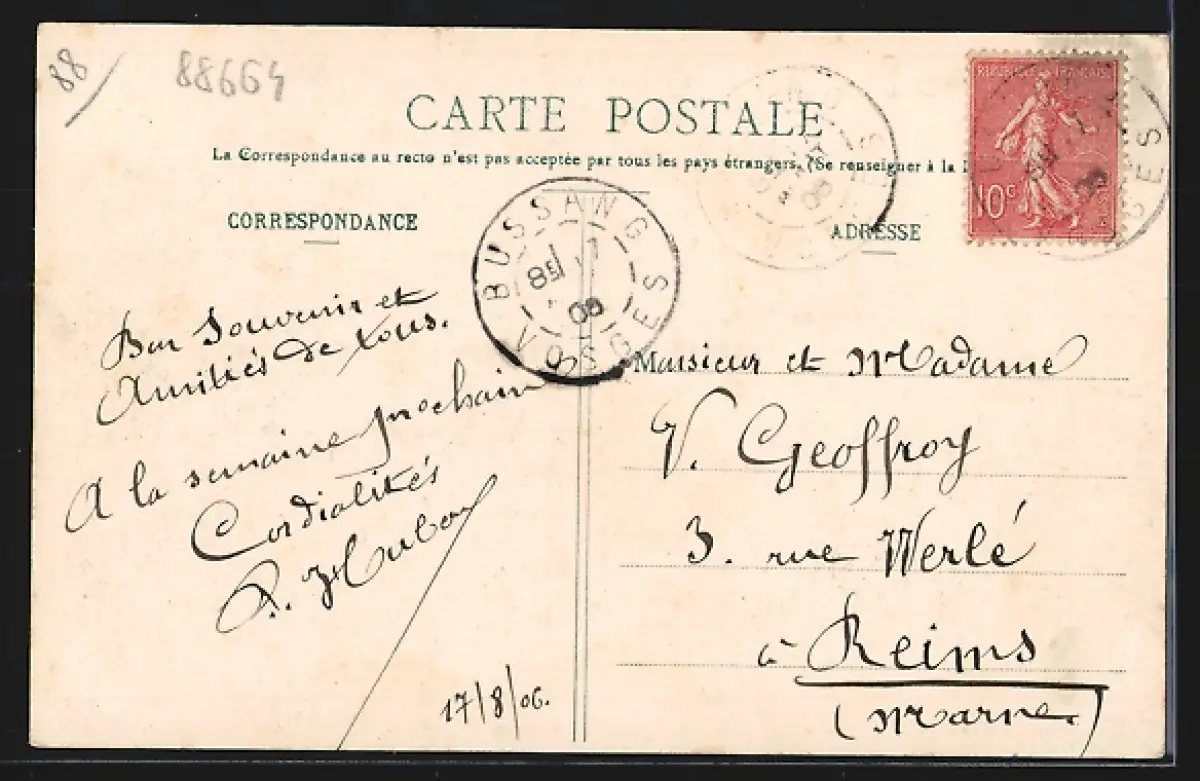 88
88664
CARTE POSTALE
La Correspondance au recto n'est pas acceptée par tous les pays étrangers. (Se renseigner à la
CORRESPONDANCE
ADRESSE
REPUBLIQUE FRANÇAISE
10c
BUSSANG
VOSGES
Bon Souvenir et
Amitiés de tous.
A la semaine prochaine
Cordialités
17/8/06.
Monsieur et Madame
V. Geoffroy
3. rue Werlé
à Reims
(Marne)